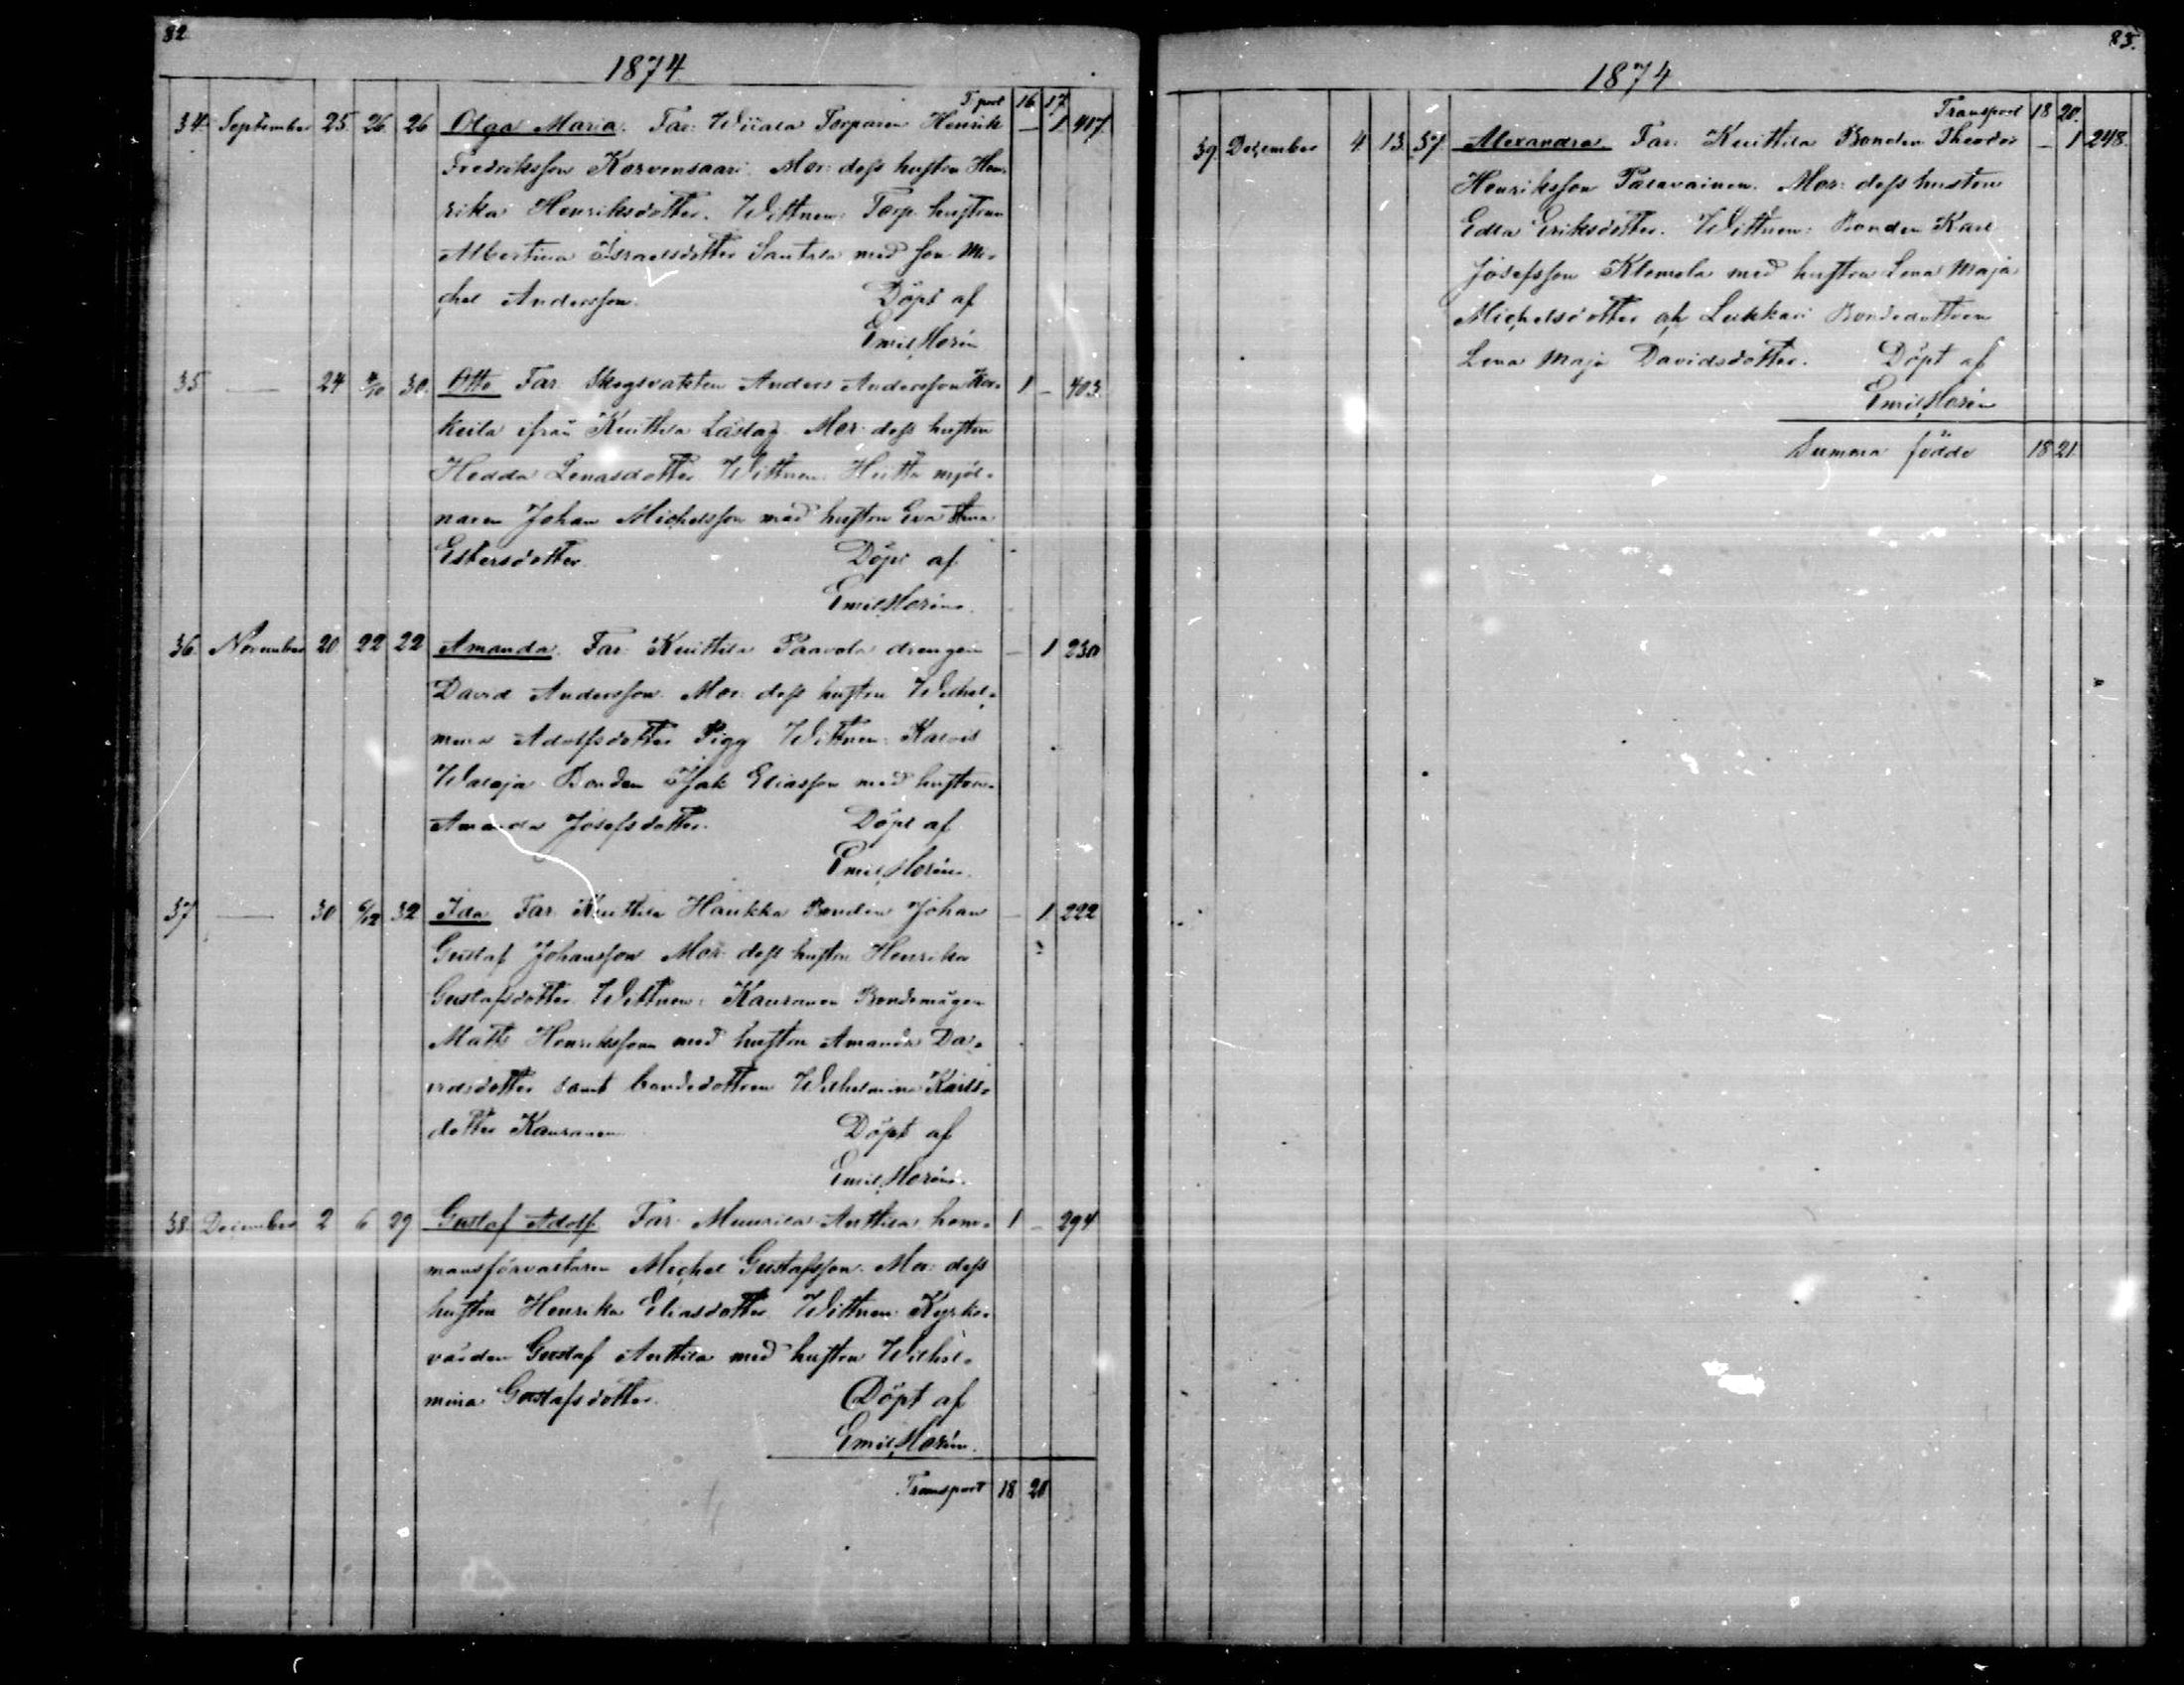 82
1874
T.port 16 17
34. September 25. 26. 26 Olga Maria. Far: Wiiala Torparen Henrik — 1 407.
Fredriksson Korvensaari. Mor: dess hustru Hen-
rika Henriksdotter. Wittnen: Torp. hustrun
Albertina Israelsdotter Santala med son Mi-
chel Andersson. Döpt af
Emil Horén
35 — 24 4/10 30. Otto Far: Skogsvakten Anders Andersson Kor- 1 — 403.
keila ifrån Knuttila Mor: dess hustru
Hedda Wittnen: Huitta mjöl-
naren Johan Michelsson med hustru Eva Stina
Döpt af
Emil Horén.
36. November 20. 22 22 Amanda. Far: Knuttila Paavola drengen — 1 230
David Andersson. Mor: dess hustru Wilhel-
mina Adolfsdotter Pigg Wittnen:
Bonden Isak Eliasson med hustru
Amanda Josefsdotter. Döpt af
Emil Horén.
37 — 30 6/12 32 Ida Far: Knuttila Haukka Bonden Johan — 1 222
Gustaf Johansson Mor: dess hustru Henrika
Gustafsdotter. Wittnen: Kauranen Bondemågen
Matts Henriksson med hustru Amanda Da-
vidsdotter samt bondedottren Wilhelmina Karls-
dotter Kauranen Döpt af
Emil Horén.
38. December 2 6 29 Gustaf Adolf. Far: Muurila Anttila hem- 1 — 294
mansförvaltaren Michel Gustafsson. Mor: dess
hustru Henrika Eliasdotter. Wittnen: Kyrko-
värden Gustaf Anttila med hustru Wilhel-
mina Gustafsdotter. Döpt af
Emil Horén.
Transport 18 20
83.
1874
Transport 18 20.
39. December 4 13. 37 Alexandra Far: Knuttila Bonden Theodor — 1 248.
Henriksson Palavainen. Mor: dess hustru
Edla Eriksdotter. Wittnen: Bonden Karl
Josefsson Klemola med hustru Lena Maja
Michelsdotter och Lukkari Bondedottren
Lena Maja Davidsdotter. Döpt af
Emil Horén
Summa födde 18 21.